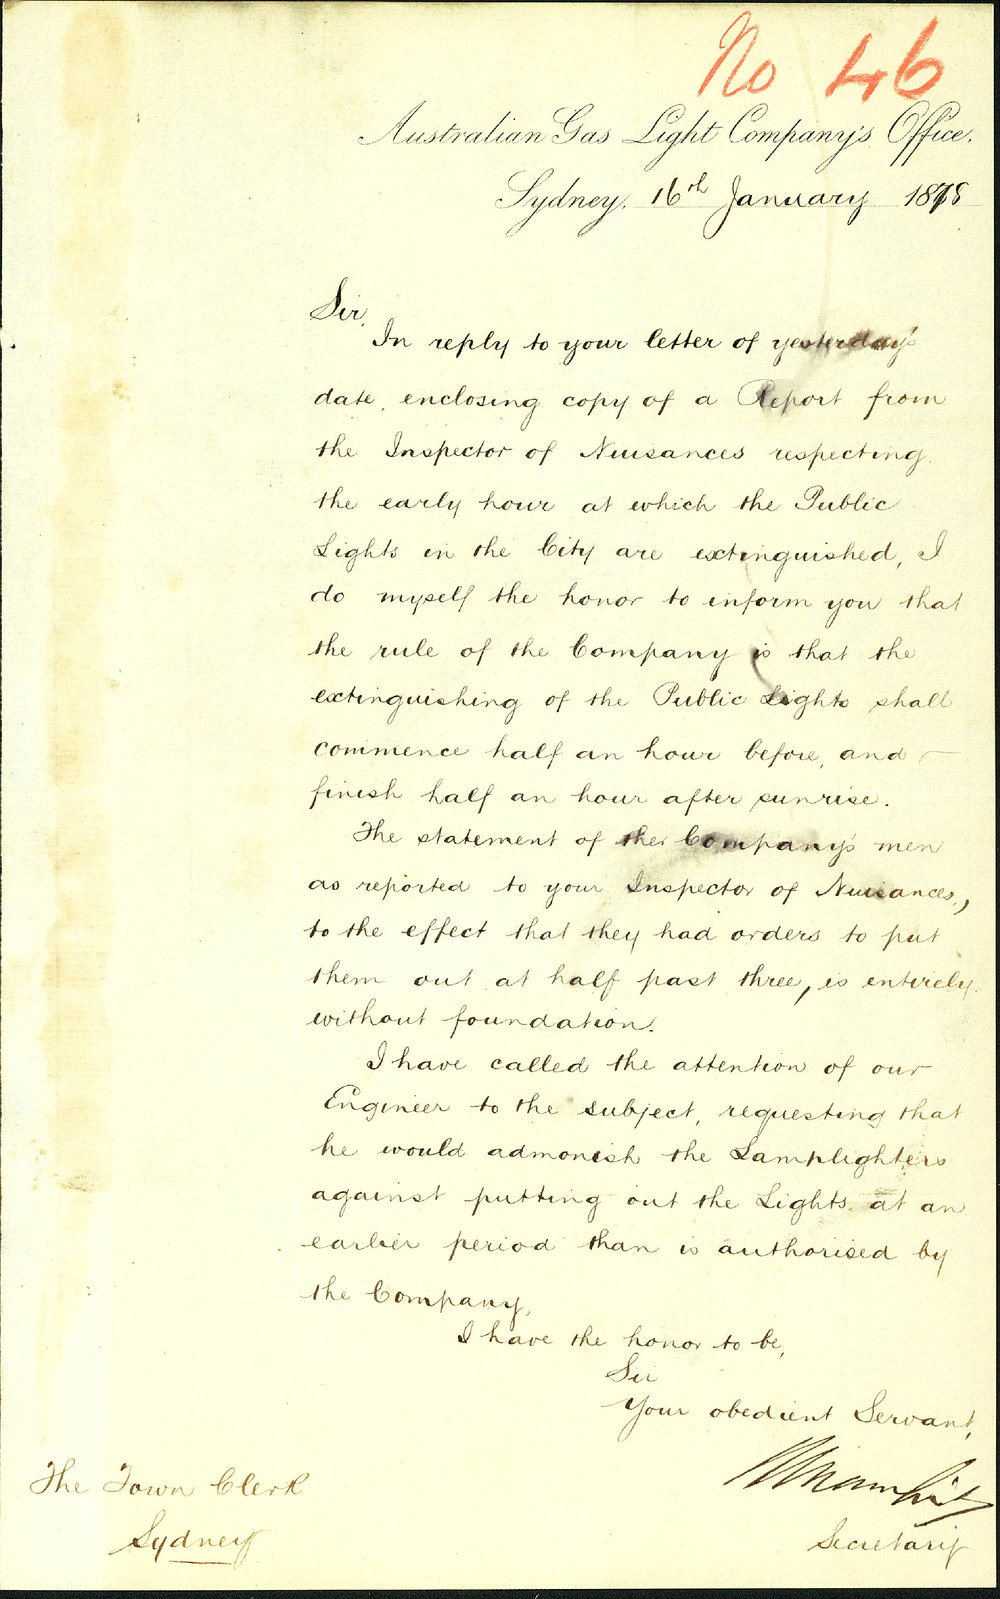 No 46
Australian Gas Light Company's Office.
Sydney, 16th January 1878
Sir,
In reply to your letter of yesterday's
date, enclosing copy of a Report from
the Inspector of Nuisances respecting
the early hour at which the Public
Lights in the City are extinguished, I
do myself the honor to inform you that
the rule of the Company is that the
extinguishing of the Public Lights shall
commence half an hour before, and
finish half an hour after sunrise.
The statement of the Company's men
as reported to your Inspector of Nuisances,
to the effect that they had orders to put
them out at half past three, is entirely
without foundation.
I have called the attention of our
Engineer to the subject, requesting that
he would admonish the Lamplighters
against putting out the Lights at an
earlier period than is authorised by
the Company.
I have the honor to be,
Sir
Your obedient Servant,
Secretary
The Town Clerk
Sydney